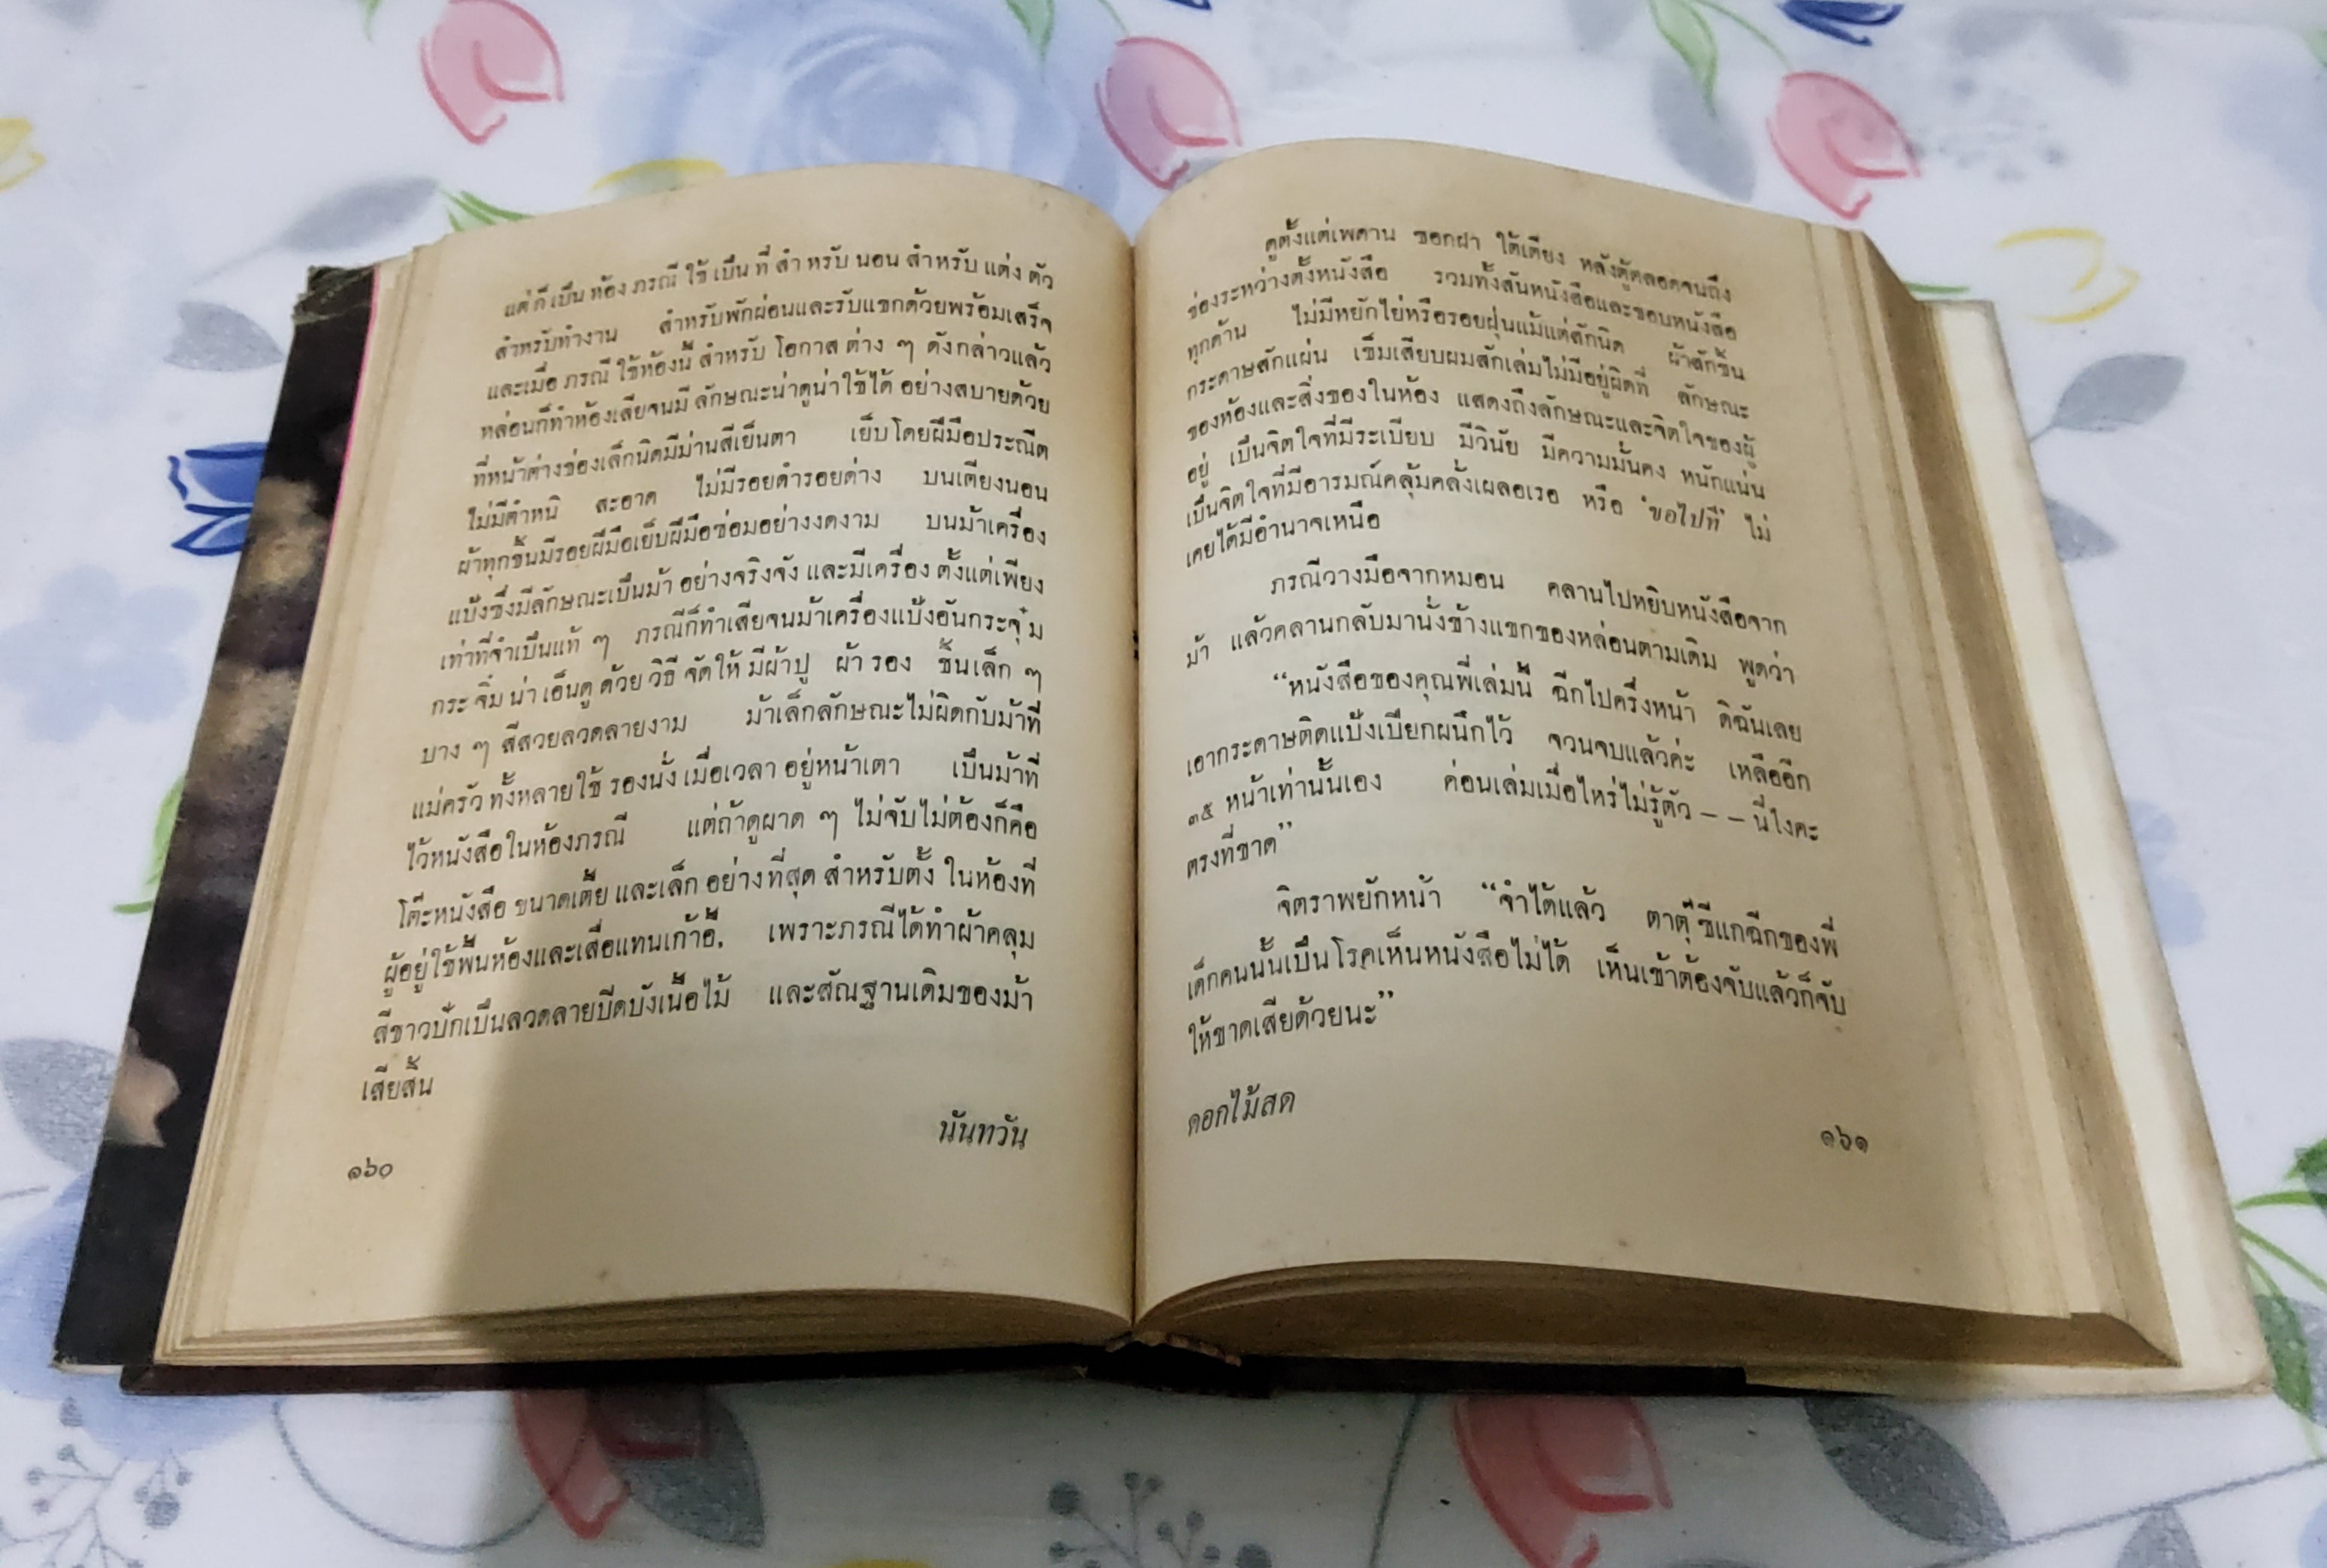 แต่ก็เป็นห้องภรณีใช้เป็นที่สำหรับนอนสำหรับแต่งตัว
สำหรับทำงาน สำหรับพักผ่อนและรับแขกด้วยพร้อมเสร็จ
และเมื่อภรณีใช้ห้องนี้สำหรับโอกาสต่าง ๆ ดังกล่าวแล้ว
หล่อนก็ทำห้องเสียจนมีลักษณะน่าดูน่าใช้ได้อย่างสบายด้วย
ที่หน้าต่างช่องเล็กนิดมีม่านสีเย็นตา เย็บโดยฝีมือประณีต
ไม่มีตำหนิ สะอาด ไม่มีรอยดำรอยด่าง บนเตียงนอน
ผ้าทุกชิ้นมีรอยฝีมือเย็บฝีมือซ่อมอย่างงดงาม บนม้าเครื่อง
แป้งซึ่งมีลักษณะเป็นม้าอย่างจริงจัง และมีเครื่องตั้งแต่เพียง
เท่าที่จำเป็นแท้ ๆ ภรณีก็ทำเสียจนม้าเครื่องแป้งอันกระจุ๋ม
กระจิ๋มน่าเอ็นดูด้วยวิธีจัดให้มีผ้าปู ผ้ารอง ชิ้นเล็ก ๆ
บาง ๆ สีสวยลวดลายงาม ม้าเล็กลักษณะไม่ผิดกับม้าที่
แม่ครัวทั้งหลายใช้รองนั่งเมื่อเวลาอยู่หน้าเตา เป็นม้าที่
ไว้หนังสือในห้องภรณี แต่ถ้าดูผาด ๆ ไม่จับไม่ต้องก็คือ
โต๊ะหนังสือขนาดเตี้ยและเล็กอย่างที่สุดสำหรับตั้งในห้องที่
ผู้อยู่ใช้พื้นห้องและเสื่อแทนเก้าอี้. เพราะภรณีได้ทำผ้าคลุม
สีขาวปักเป็นลวดลายปิดบังเนื้อไม้ และสัณฐานเดิมของม้า
เสียสิ้น
นันทวัน
๑๖๐
ดูตั้งแต่เพดาน ซอกฝา ใต้เตียง หลังตู้ตลอดจนถึง
ช่องระหว่างตั้งหนังสือ รวมทั้งสันหนังสือและขอบหนังสือ
ทุกด้าน ไม่มีหยักไย่หรือรอยฝุ่นแม้แต่สักนิด ผ้าสักชิ้น
กระดาษสักแผ่น เข็มเสียบผมสักเล่มไม่มีอยู่ผิดที่ ลักษณะ
ของห้องและสิ่งของในห้อง แสดงถึงลักษณะและจิตใจของผู้
อยู่ เป็นจิตใจที่มีระเบียบ มีวินัย มีความมั่นคง หนักแน่น
เป็นจิตใจที่มีอารมณ์คลุ้มคลั่งเผลอเรอ หรือ 'ขอไปที' ไม่
เคยได้มีอำนาจเหนือ
ภรณีวางมือจากหมอน คลานไปหยิบหนังสือจาก
ม้า แล้วคลานกลับมานั่งข้างแขกของหล่อนตามเดิม พูดว่า
“หนังสือของคุณพี่เล่มนี้ ฉีกไปครึ่งหน้า ดิฉันเลย
เอากระดาษติดแป้งเปียกผนึกไว้ จวนจบแล้วค่ะ เหลืออีก
๓๕ หน้าเท่านั้นเอง ค่อนเล่มเมื่อไหร่ไม่รู้ตัว – – นี่ไงคะ
ตรงที่ขาด”
จิตราพยักหน้า “จำได้แล้ว ตาตุ๊ซีแกฉีกของพี่
เด็กคนนั้นเป็นโรคเห็นหนังสือไม่ได้ เห็นเข้าต้องจับแล้วก็จับ
ให้ขาดเสียด้วยนะ”
ดอกไม้สด
๑๖๑